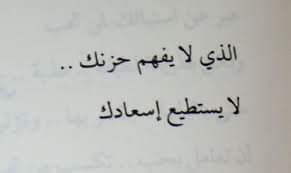 الذي لا يفهم حزنك ..
لا يستطيع إسعادك